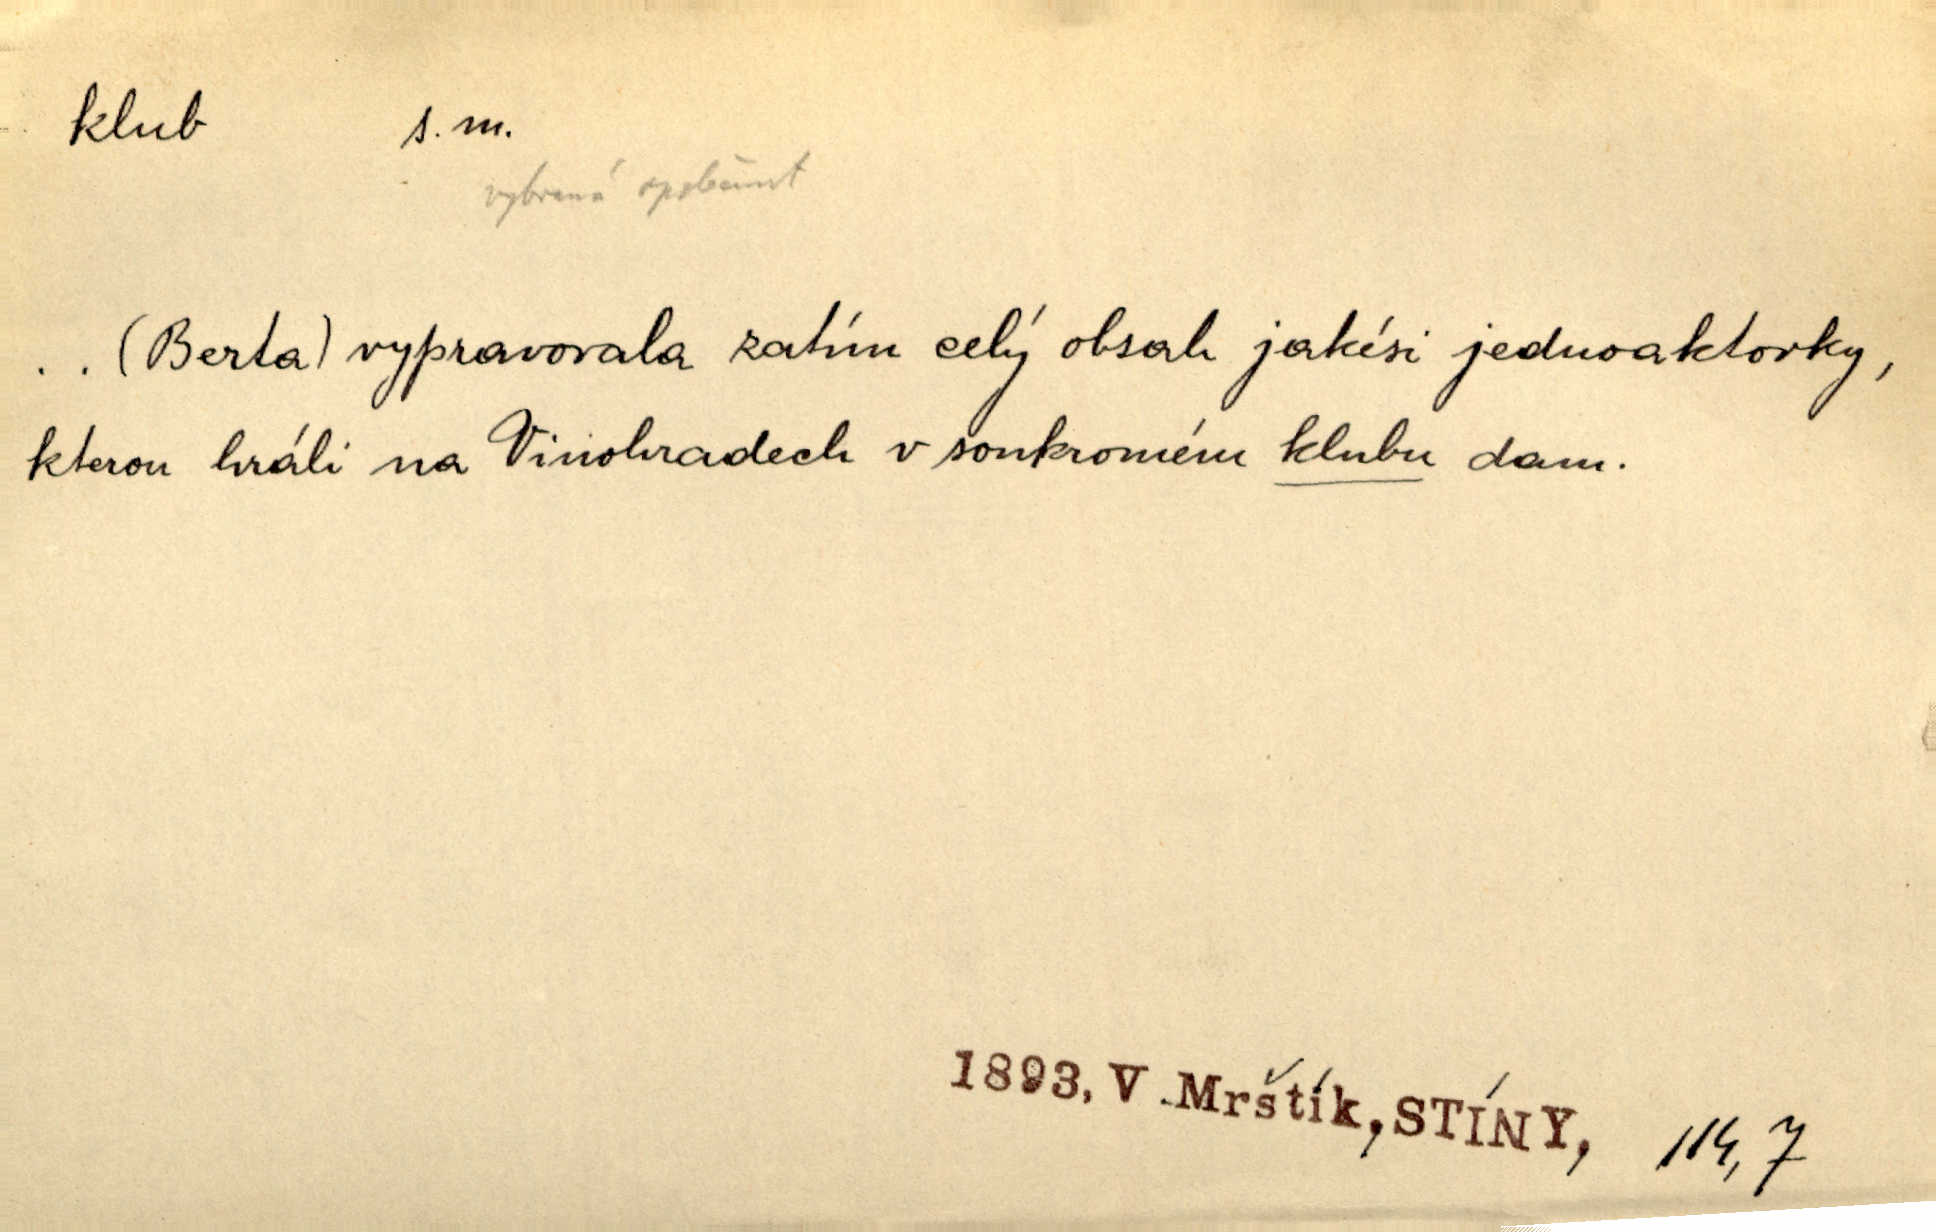 klub s. m.
vybraná společnost
. . (Berta) vypravovala zatím celý obsah jakési jednoaktovky,
kterou hráli na Vinohradech v soukromém klubu dam.
1893, V. Mrštík, STÍNY, 114, 7